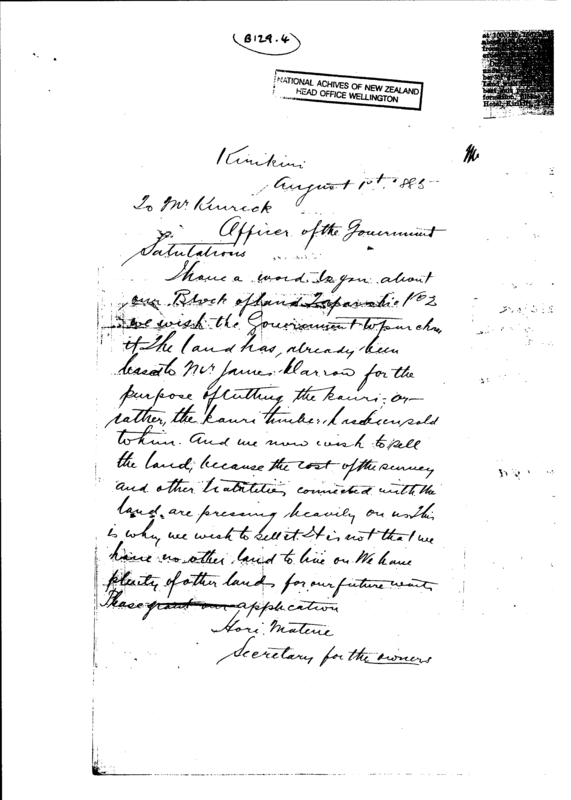 B129.4
NATIONAL ACHIVES OF NEW ZEALAND
HEAD OFFICE WELLINGTON
Kirikiri
August 1st 1885
To Mr Kenrick
Officer of the Government
Salutations
I have a word to you about
our Block of land No 2
we wish the Government to purchase
it The land has, already been
leased to Mr James Darrow for the
purpose of cutting the kauri, or
rather, the kauri timber, has been sold
to him. And we now wish to sell
the land, because the cost of the survey
and other liabilities connected with the
land, are pressing heavily on us This
is why we wish to sell it It is not that we
have no other land to live on We have
plenty of other lands for our future wants
Please grant our application
Hori Matene
Secretary for the owners